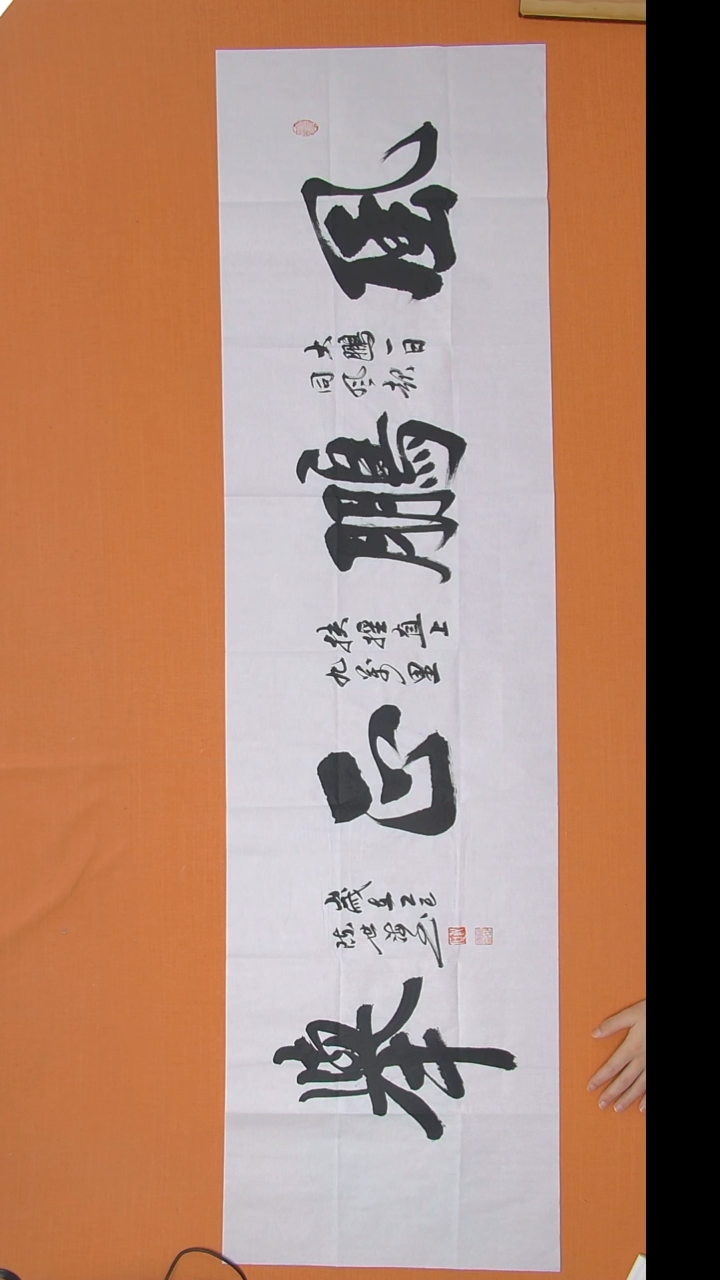 風
大鵬一日
同风起
鵬
扶搖直上
九萬里
正
歲在乙巳
陳世
舉